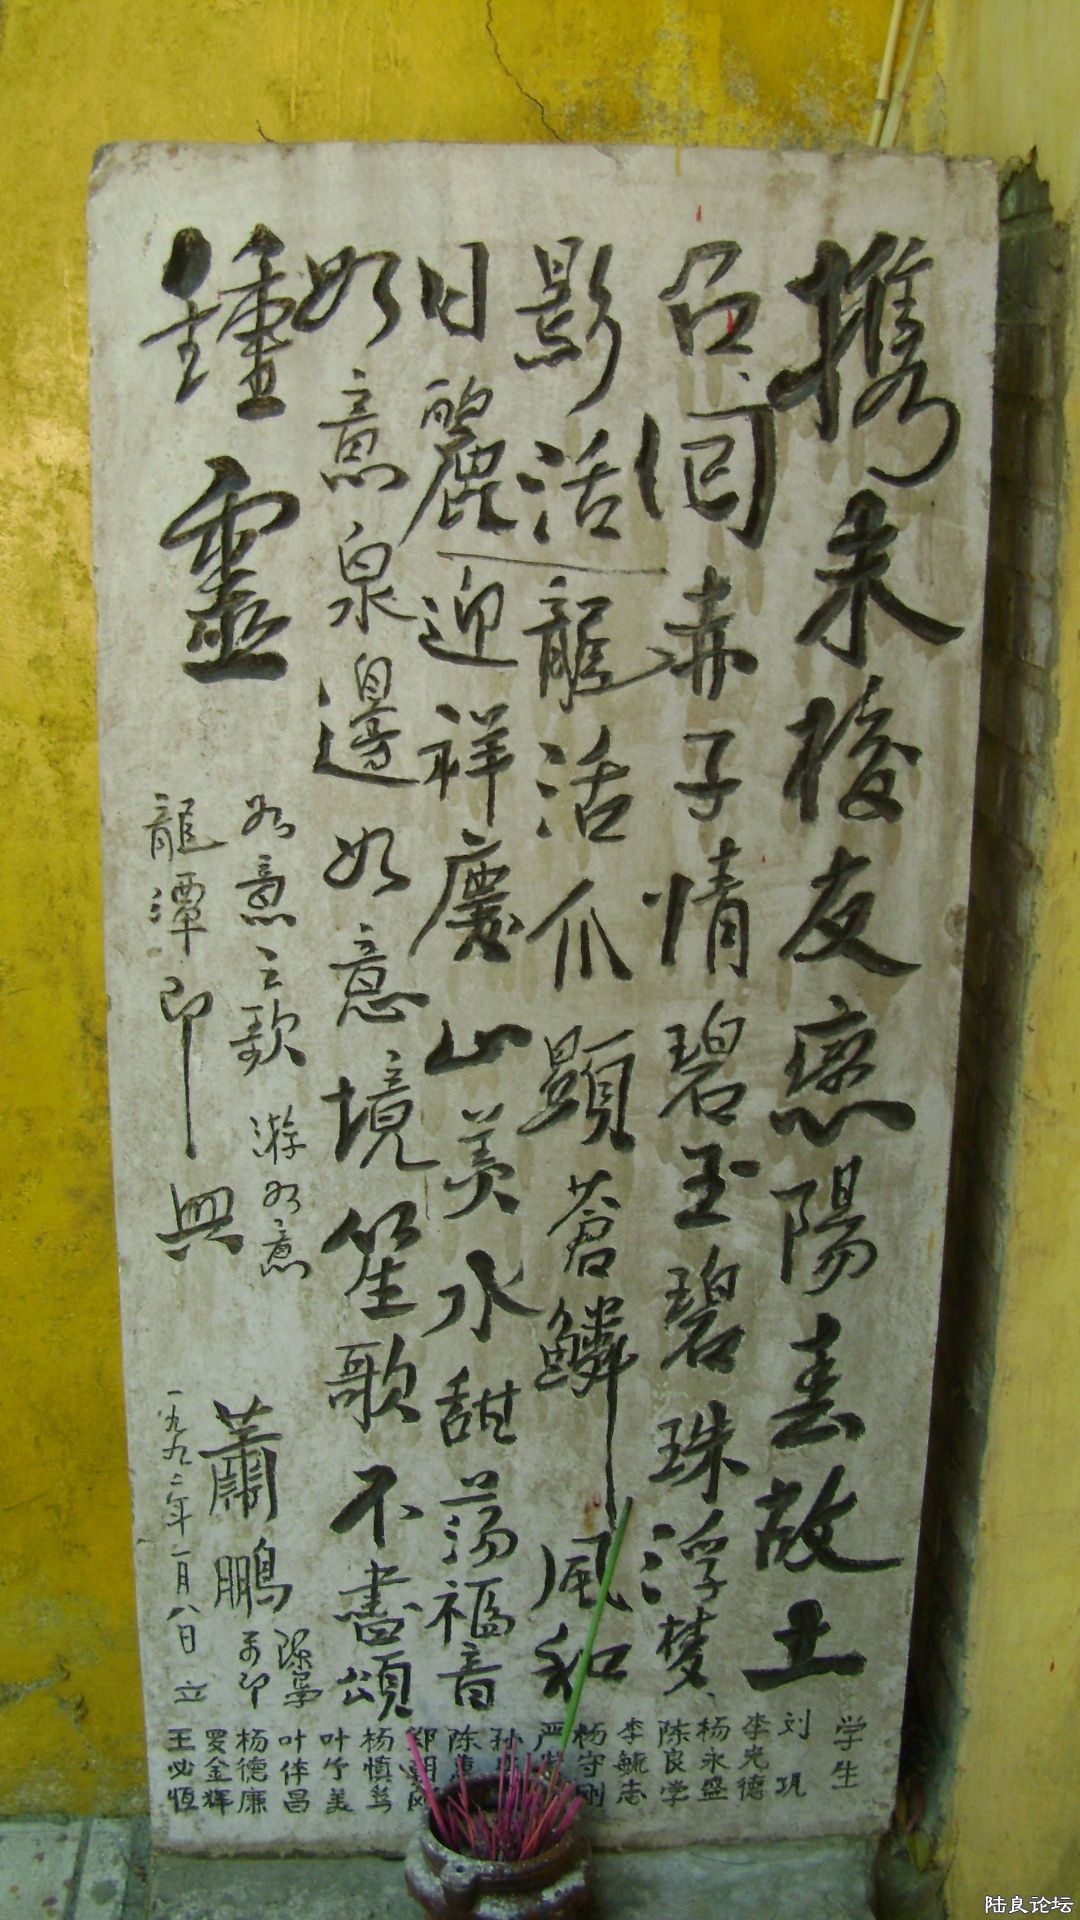 携来校友恋阳春故土
召回赤子情碧玉碧珠浮梦
影活龍活爪顯蒼鱗风和
日麗迎祥慶山美水甜荡福音
如意泉邊如意境笙歌不盡頌
鍾靈
如意之歌 游如意
龍潭即興
蕭鵬
一九九二年一月八日 立
学生
刘巩
李光德
杨永盛
陈良学
李毓志
杨守刚
严
孙
陈
郑
杨慎笃
叶竹美
叶倖昌
杨德廉
罗金辉
王必恆
陆良论坛